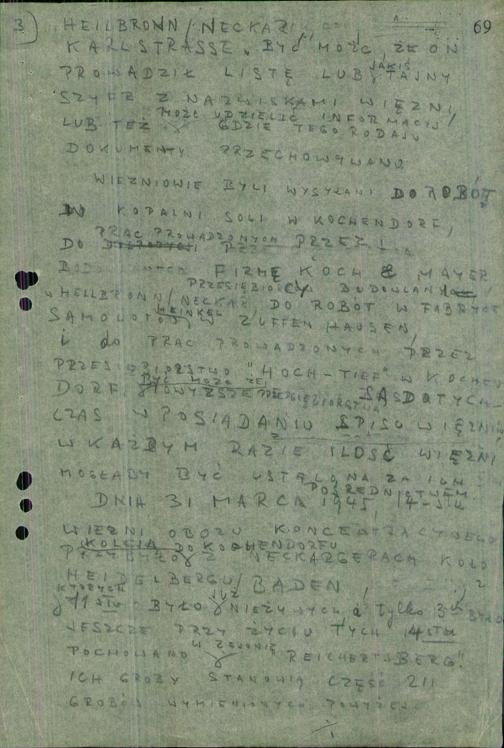 3) 69
HEILBRONN/NECKAR
KARLSTRASSE. BYĆ MOŻE, ŻE ON
PROWADZIŁ LISTĘ LUB JAKIŚ TAJNY
SZYFR Z NAZWISKAMI WIĘŹNI,
MOŻE UDZIELIĆ INFORMACYJ
LUB TEŻ GDZIE TEGO RODZAJU
DOKUMENTY PRZECHOWYWANO
WIEŹNIOWIE BYLI WYSYŁANI DO ROBÓT
W KOPALNI SOLI W KOCHENDORF,
PRAC PROWADZONYCH
DO PRZEZ
FIRMĘ KOCH & MAYER
PRZESIĘBIORCY BUDOWLANI
HEILBRONN/NECKAR DO ROBÓT W FABRYCE
HEINKEL
SAMOLOTÓW W ZUFFENHAUSEN,
i DO PRAC PROWADZONYCH PRZEZ
PRZESIĘBIORSTWO "HOCH-TIEF" W KOCHEN
BYĆ MOŻE ŻE
DORF. POWYŻSZE PRZESIĘBIORSTWA SĄ DOTYCH-
CZAS W POSIADANIU SPISU WIĘŹNIÓW
W KAŻDYM RAZIE ILOŚĆ WIĘŹNI
MOGŁABY BYĆ USTALONA ZA ICH
POŚREDNICTWEM
DNIA 31 MARCA 1945, 14-STU
WIĘŹNI OBOZU KONCENTRACYJNEGO
KOLEJĄ DO KOCHENDORFU
PRZYBYŁO Z NECKARGERACH KOŁO
HEIDELBERGU/BADEN,
Z KTÓRYCH JUŻ
11 STU BYŁO NIEŻYWYCH a tylko 3ch BYŁO
JESZCZE PRZY ŻYCIU TYCH 14STU
POCHOWANO "REICHERTSBERG".
ICH GROBY STANOWIĄ CZĘŚĆ 211
GROBÓW WYMIENIONYCH POWYŻEJ